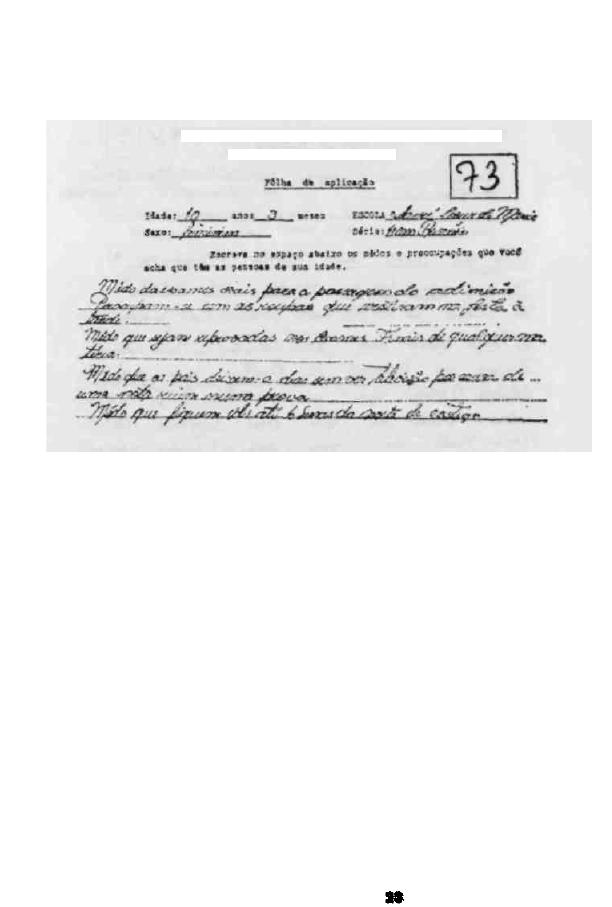 Fôlha de aplicação
73
Idade: 10 anos 3 meses ESCOLA
Sexo: feminino Série:
Escreva no espaço abaixo os mêdos e preocupações que você
acha que têm as pessoas de sua idade.
Mêdo dos exames orais para a passagem do admissão
Preocupam-se com as roupas que vestiram na festa à
tarde.
Mêdo que sejam reprovadas nos Exames Finais de qualquer ma
téria.
Mêdo que os pais deixem-a dias sem ver televisão por causa de ...
uma nota ruim numa prova.
Mêdo que fiquem até 6 horas da de castigo
23